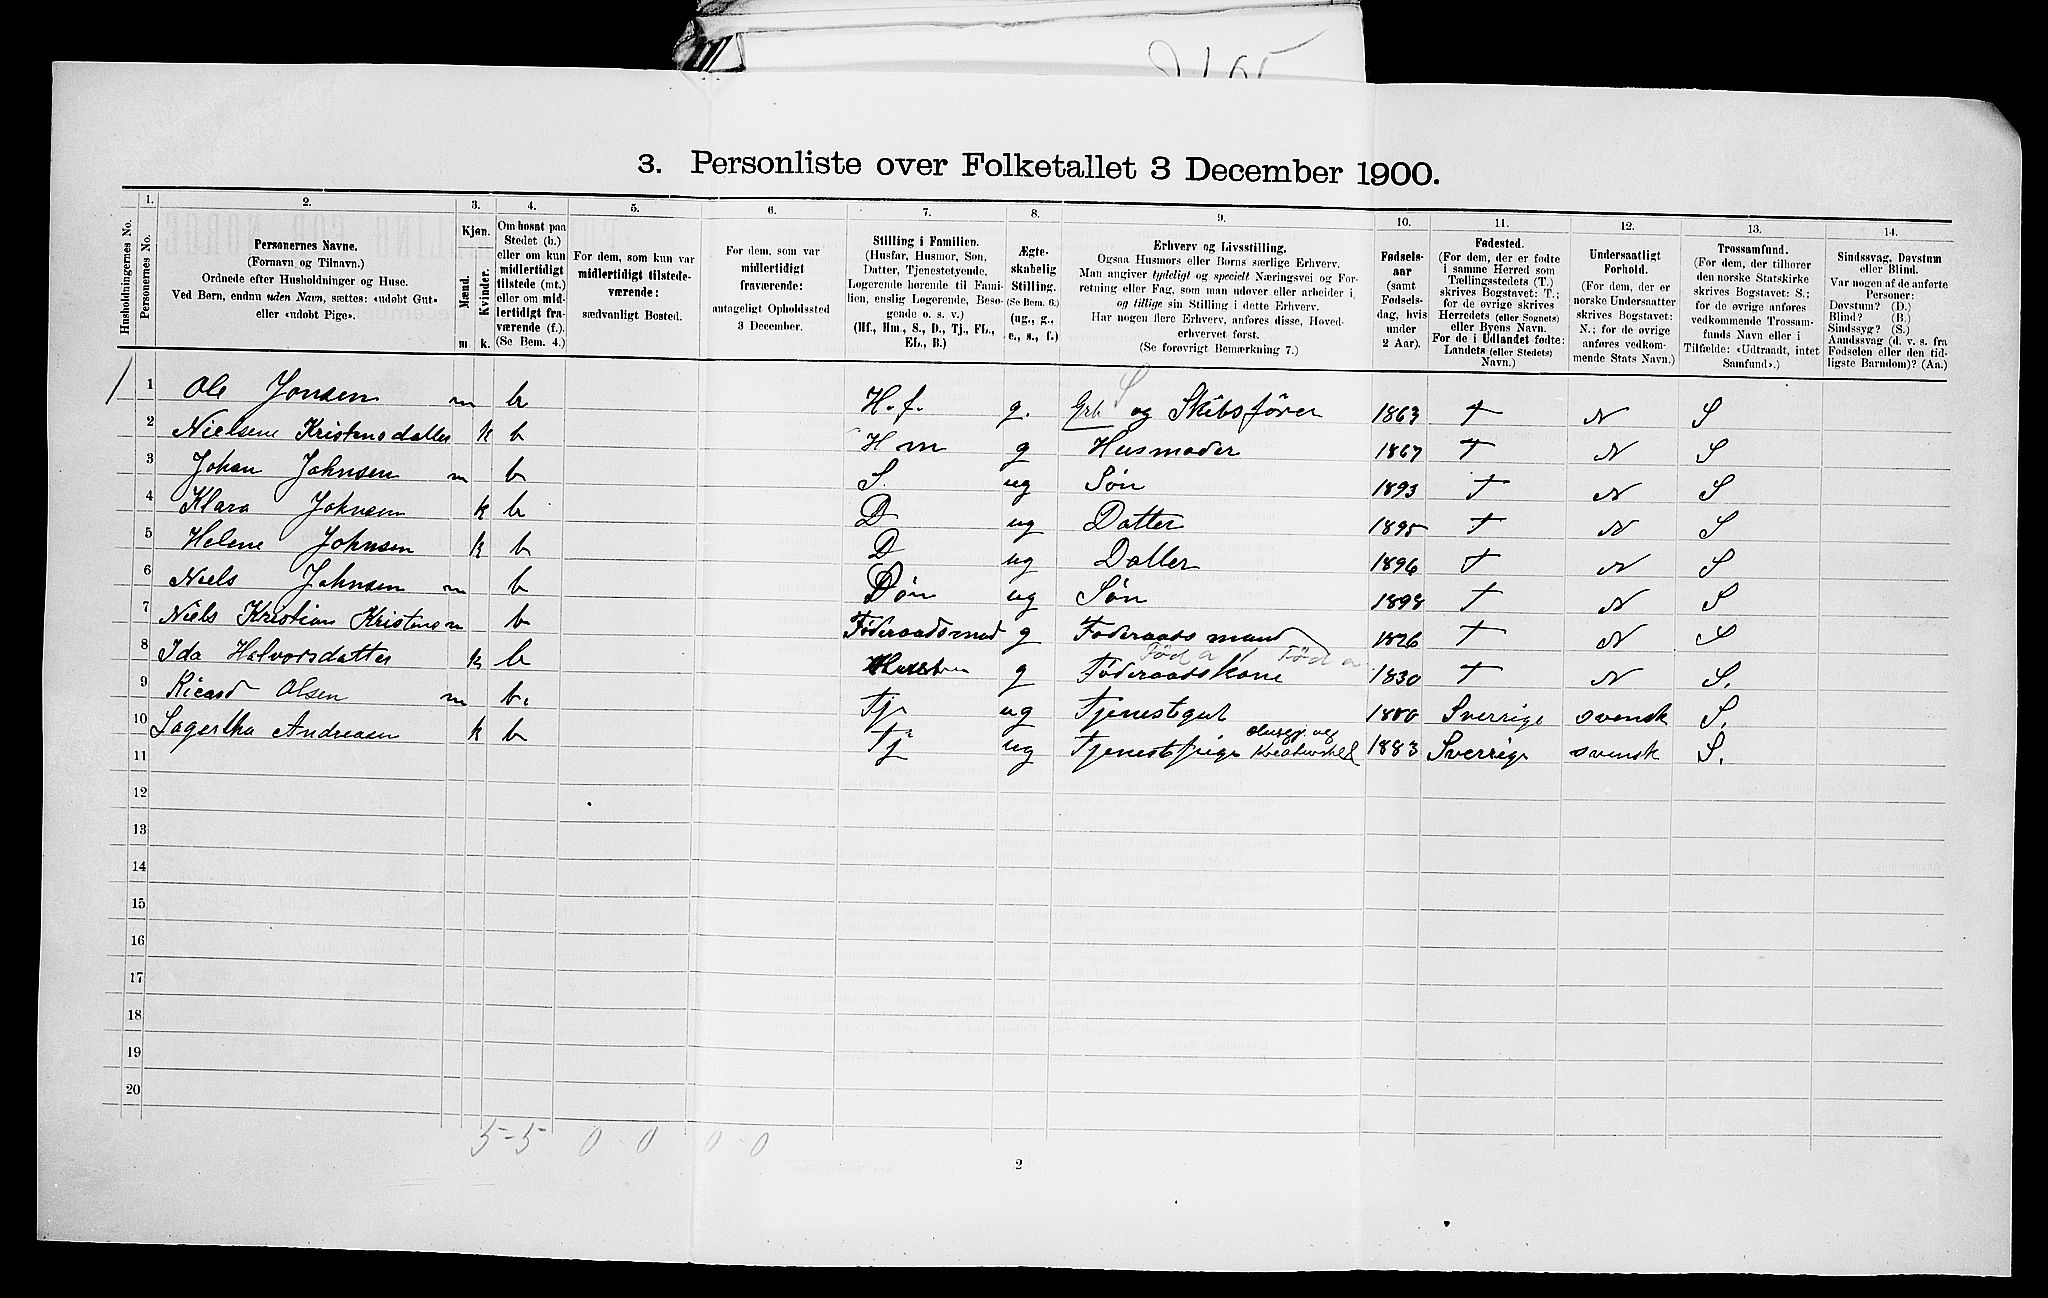 3. Personliste over Folketallet 3 December 1900.
Husholdningernes No.
1.
Personernes No.
2.
Personernes Navne.
(Fornavn og Tilnavn.)
Ordnede efter Husholdninger og Huse.
Ved Børn, endnu uden Navn, sættes: «udøbt Gut»
eller «udøbt Pige».
3.
Kjøn.
Mænd.
Kvinder.
m k.
4.
Om bosat paa
Stedet (b.)
eller om kun
midlertidigt
tilstede (mt.)
eller om mid-
lertidigt fra-
værende (f.).
(Se Bem. 4.)
5.
For dem, som kun var
midlertidigt tilstede-
værende:
sædvanligt Bosted.
6.
For dem, som var
midlertidigt
fraværende:
antageligt Opholdssted
3 December.
7.
Stilling i Familien.
(Husfar, Husmor, Søn,
Datter, Tjenestetyende,
Løgerende hørende til Fami-
lien, enslig Løgerende, Besø-
gende o. s. v.)
(Hf., Hm., S., D., Tj., FL.,
EL., B.)
8.
Ægte-
skabelig
Stilling.
(Se Bem. 6.)
(ug., g.,
e., s., f.)
9.
Erhverv og Livsstilling.
Ogsaa Husmors eller Børns særlige Erhverv.
Man angiver tydeligt og specielt Næringsvei og For-
retning eller Fag, som man udøver eller arbeider i,
og tillige sin Stilling i dette Erhverv.
Har nogen flere Erhverv, anføres disse, Hoved-
erhvervet først.
(Se forøvrigt Bemærkning 7.)
10.
Fødsels-
aar
(samt
Fødsels-
dag, hvis
under
2 Aar).
11.
Fødested.
(For dem, der er fødte
i samme Herred som
Tællingsstedets (T.)
skrives Bogstavet: T.;
for de øvrige skrives
Herredets (eller Sognets)
eller Byens Navn.
For de i Udlandet fødte:
Landets (eller Stedets)
Navn.)
12.
Undersaatligt
Forhold.
(For dem, der er
norske Undersaatter
skrives Bogstavet:
N.; for de øvrige
anføres vedkom-
mende Stats Navn.)
13.
Trossamfund.
(For dem, der tilhører
den norske Statskirke
skrives Bogstavet: S.;
for de øvrige anføres
vedkommende Trossam-
funds Navn eller i
Tilfælde: «Udtraadt, intet
Samfund».)
14.
Sindssvag, Døvstum
eller Blind.
Var nogen af de anførte
Personer:
Døvstum? (D.)
Blind? (B.)
Sindssyg? (S.)
Aandssvag (d. v. s. fra
Fødselen eller den tid-
ligste Barndom)? (Aa.)
1 1 Ole Jonsen m b H.f. g. Grb S og Skibsfører 1863 T N S
2 Nielsene Kristensdatter k b Hm g Husmoder 1867 T N S
3 Johan Johnsen m b S. ug Søn 1893 T N S
4 Klara Johnsen k b D ug Datter 1895 T N S
5 Helene Johnsen k b D ug Datter 1896 T N S
6 Niels Johnsen m b Søn ug Søn 1898 T N S
7 Niels Kristian Kristensen m b Føderaadsmand g Føderaadsmand 1826 T N S
8 Ida Halvorsdatter k b g Føderaadskone 1830 T N S.
9 Ricard Olsen m b. Tj ug Tjenestgut 1880 Sverrige svensk S.
10 Lagertha Andreasen k b Tj ug Tjenestpige Husgj. og Kreaturstel 1883 Sverrige svensk S.
11
12
13
14
15
16
17
18
19
20
5-5 0-0 0-0
2